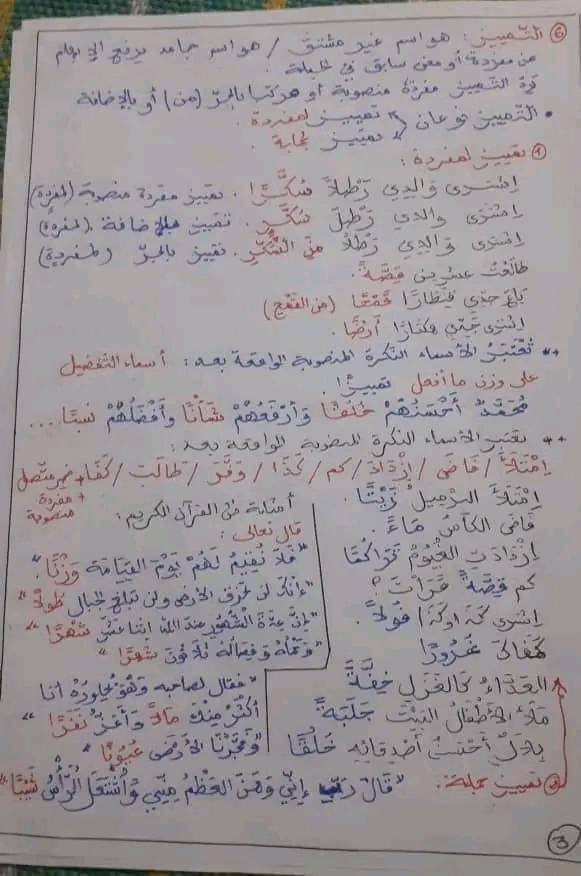 ⑥ التمييز: هو اسم غير مشتق / هو اسم جامد يرفع الإبهام
عن مفردة أو معنى سابق في الجملة.
ترد التمييز مفردة منصوبة أو مركبا بالجرّ (من) أو بالإضافة
• التمييز نوعان
تمييز لمفردة.
تمييز لجملة.
① تمييز لمفردة:
اشترى والدي رَطْلاً سُكَّرًا. تمييز مفردة منصوبة (لمفردة)
اشترى والدي رَطْلَ سُكَّرٍ. تمييز بالإضافة. (لمفردة)
اشترى والدي رَطْلًا مِنَ السُّكَّرِ. تمييز بالجرّ (لمفردة)
طالعت عشرين قِصَّةً.
باع جدي قنطارًا قَمْحًا (من القمح)
اشترى عمّي هكتارًا أَرْضًا.
** تُعْتَبَرُ الأسماء النكرة المنصوبة الواقعة بعد: أسماء التفضيل
على وزن ما أفعل تمييزًا
مُحَمَّدٌ أَحْسَنُهُمْ خُلُقًا وَأَرْفَعُهُمْ شَأْنًا وَأَفْضَلُهُمْ نَسَبًا...
** تعتبر الأسماء النكرة المنصوبة الواقعة بعد:
اِمْتَلَأَ / فَاضَ / اِزْدَادَ / كم / كَذَا / وَفَّرَ / طَالَتْ / كَفَا + ضمير متّصل
+ مفردة
منصوبة
اِمْتَلَأَ البرميل زَيْتًا.
فاض الكأس مَاءً.
اِزْدَادَتِ الغيُومُ تَرَاكُمًا
كم قِصَّةً قَرَأْتَ؟
اشترى كَذَا وكَذَا فُولاً.
كَفَاكَ غُرُورًا
العَدَّاءُ كالغَزَالِ خِفَّةً
مَلَأَ الأَطْفَالُ البَيْتَ جَلَبَةً
بِلَالٌ أَحْسَنُ أَصْدِقَائِهِ خُلُقًا
أمثلة من القرآن الكريم:
قال تعالى:
"فَلَا نُقِيمُ لَهُمْ يَوْمَ القِيَامَةِ وَزْنًا."
"إنك لن تخرق الأرض ولن تبلغ الجبال طُولاً"
"إنَّ عِدَّةَ الشُّهُورِ عند الله اثنا عشر شَهْرًا"
"وَحَمْلُهُ وَفِصَالُهُ ثَلَاثُونَ شَهْرًا"
"فقال لصاحبه وَهْوَ يُحَاوِرُهُ أنا
أَكْثَرُ مِنْكَ مَالاً وَأَعَزُّ نَفَرًا"
"وَفَجَّرْنَا الأرضَ عُيُونًا"
② تمييز جملة: "قَالَ رَبِّ إِنِّي وَهَنَ العَظْمُ مِنِّي وَاشْتَعَلَ الرَّأْسُ شَيْبًا"
3